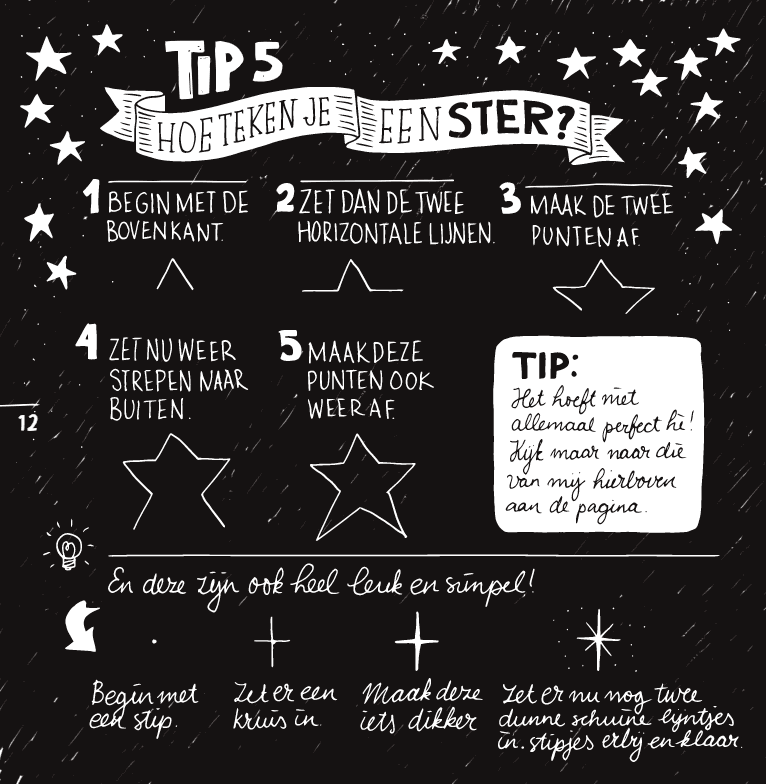 TIP 5
HOE TEKEN JE EEN STER?
1 BEGIN MET DE
BOVENKANT.
2 ZET DAN DE TWEE
HORIZONTALE LIJNEN.
3 MAAK DE TWEE
PUNTEN AF.
4 ZET NU WEER
STREPEN NAAR
BUITEN.
5 MAAK DEZE
PUNTEN OOK
WEER AF.
TIP:
Het hoeft niet
allemaal perfect hè!
Kijk maar naar die
van mij hierboven
aan de pagina.
12
En deze zijn ook heel leuk en simpel!
Begin met
een stip.
Zet er een
kruis in.
Maak deze
iets dikker
Zet er nu nog twee
dunne schuine lijntjes
in. stipjes erbij en klaar.